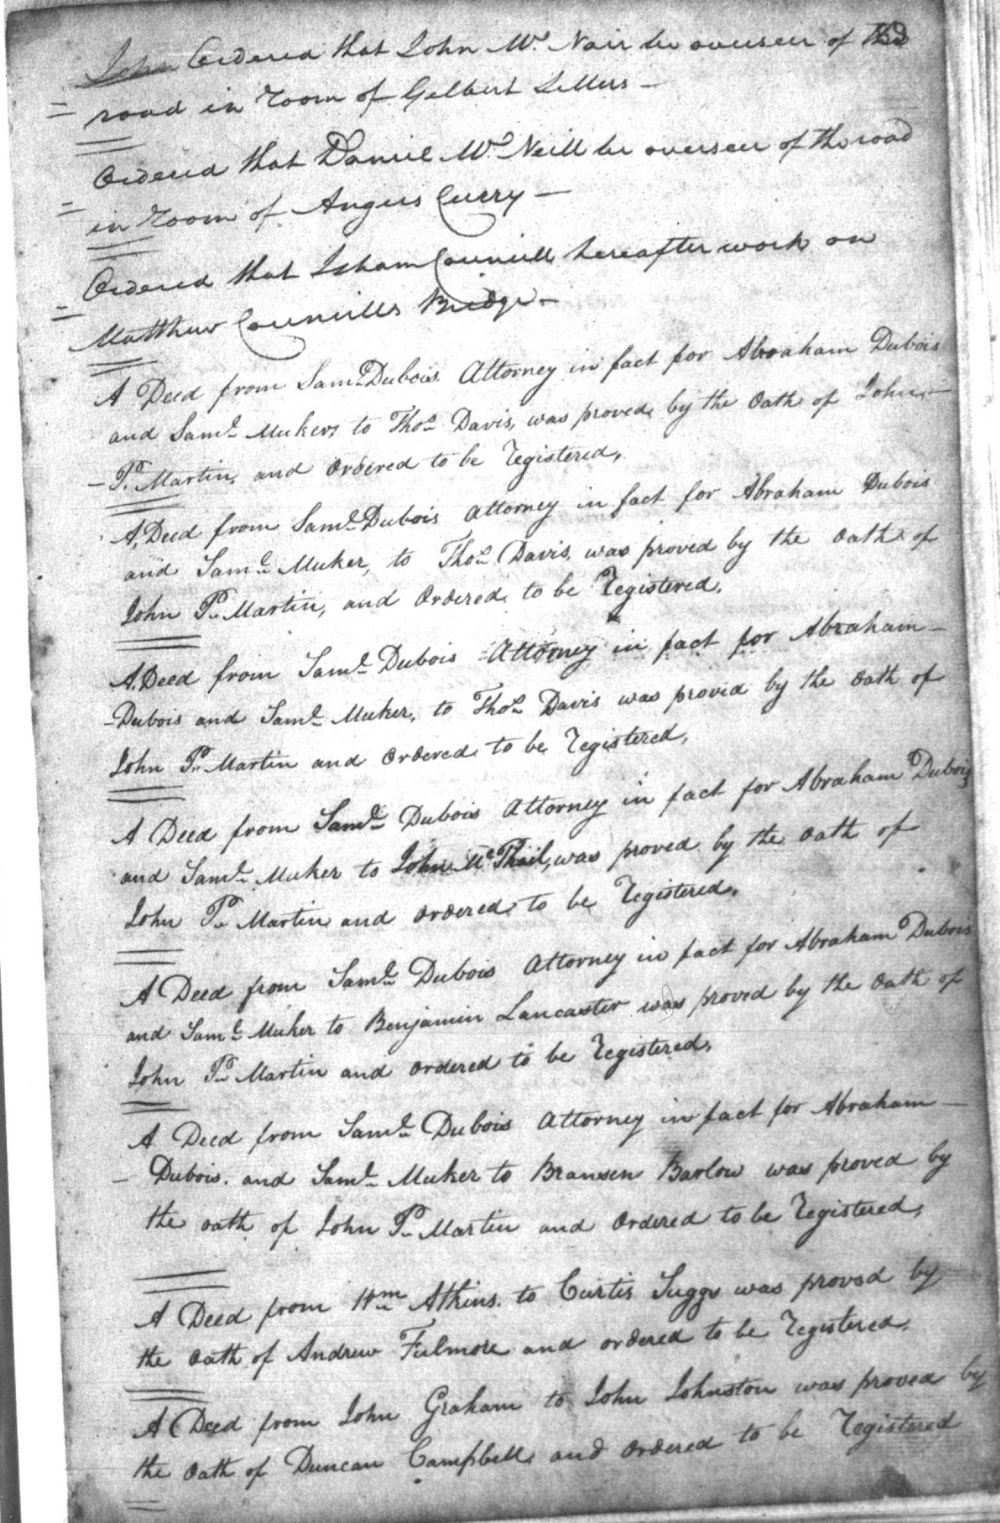 John Ordered that John Mc Nair be overseer of the
road in room of Gilbert Sellers —
Ordered that Daniel Mc Neill be overseer of the road
in room of Angus Curry —
Ordered that Isham Councill hereafter work on
Matthew Councills Bridge —
A Deed from Saml. Dubois Attorney in fact for Abraham Dubois
and Saml. Meeker, to Thos. Davis, was proved by the Oath of John —
— P. Martin, and Ordered to be Registered,
A Deed from Saml. Dubois Attorney in fact for Abraham Dubois
and Saml. Meeker, to Thos. Davis, was proved by the Oath of
John P. Martin, and Ordered to be Registered,
A Deed from Saml. Dubois Attorney in fact for Abraham —
— Dubois and Saml. Meeker, to Thos. Davis was proved by the Oath of
John P. Martin and Ordered to be Registered,
A Deed from Saml. Dubois Attorney in fact for Abraham Dubois
and Saml. Meeker to John Mc Phail, was proved by the Oath of
John P. Martin and Ordered to be Registered,
A Deed from Saml. Dubois Attorney in fact for Abraham Dubois
and Saml. Meeker to Benjamin Lancaster was proved by the Oath of
John P. Martin and Ordered to be Registered,
A Deed from Saml. Dubois Attorney in fact for Abraham —
— Dubois. and Saml. Meeker to Bransen Barlow was proved by
the oath of John P. Martin and Ordered to be Registered,
A Deed from Wm. Atkins. to Curtis Suggs was proved by
the Oath of Andrew Fulmore and ordered to be Registered,
A Deed from John Graham to John Johnston was proved by
the Oath of Duncan Campbell, and Ordered to be Registered